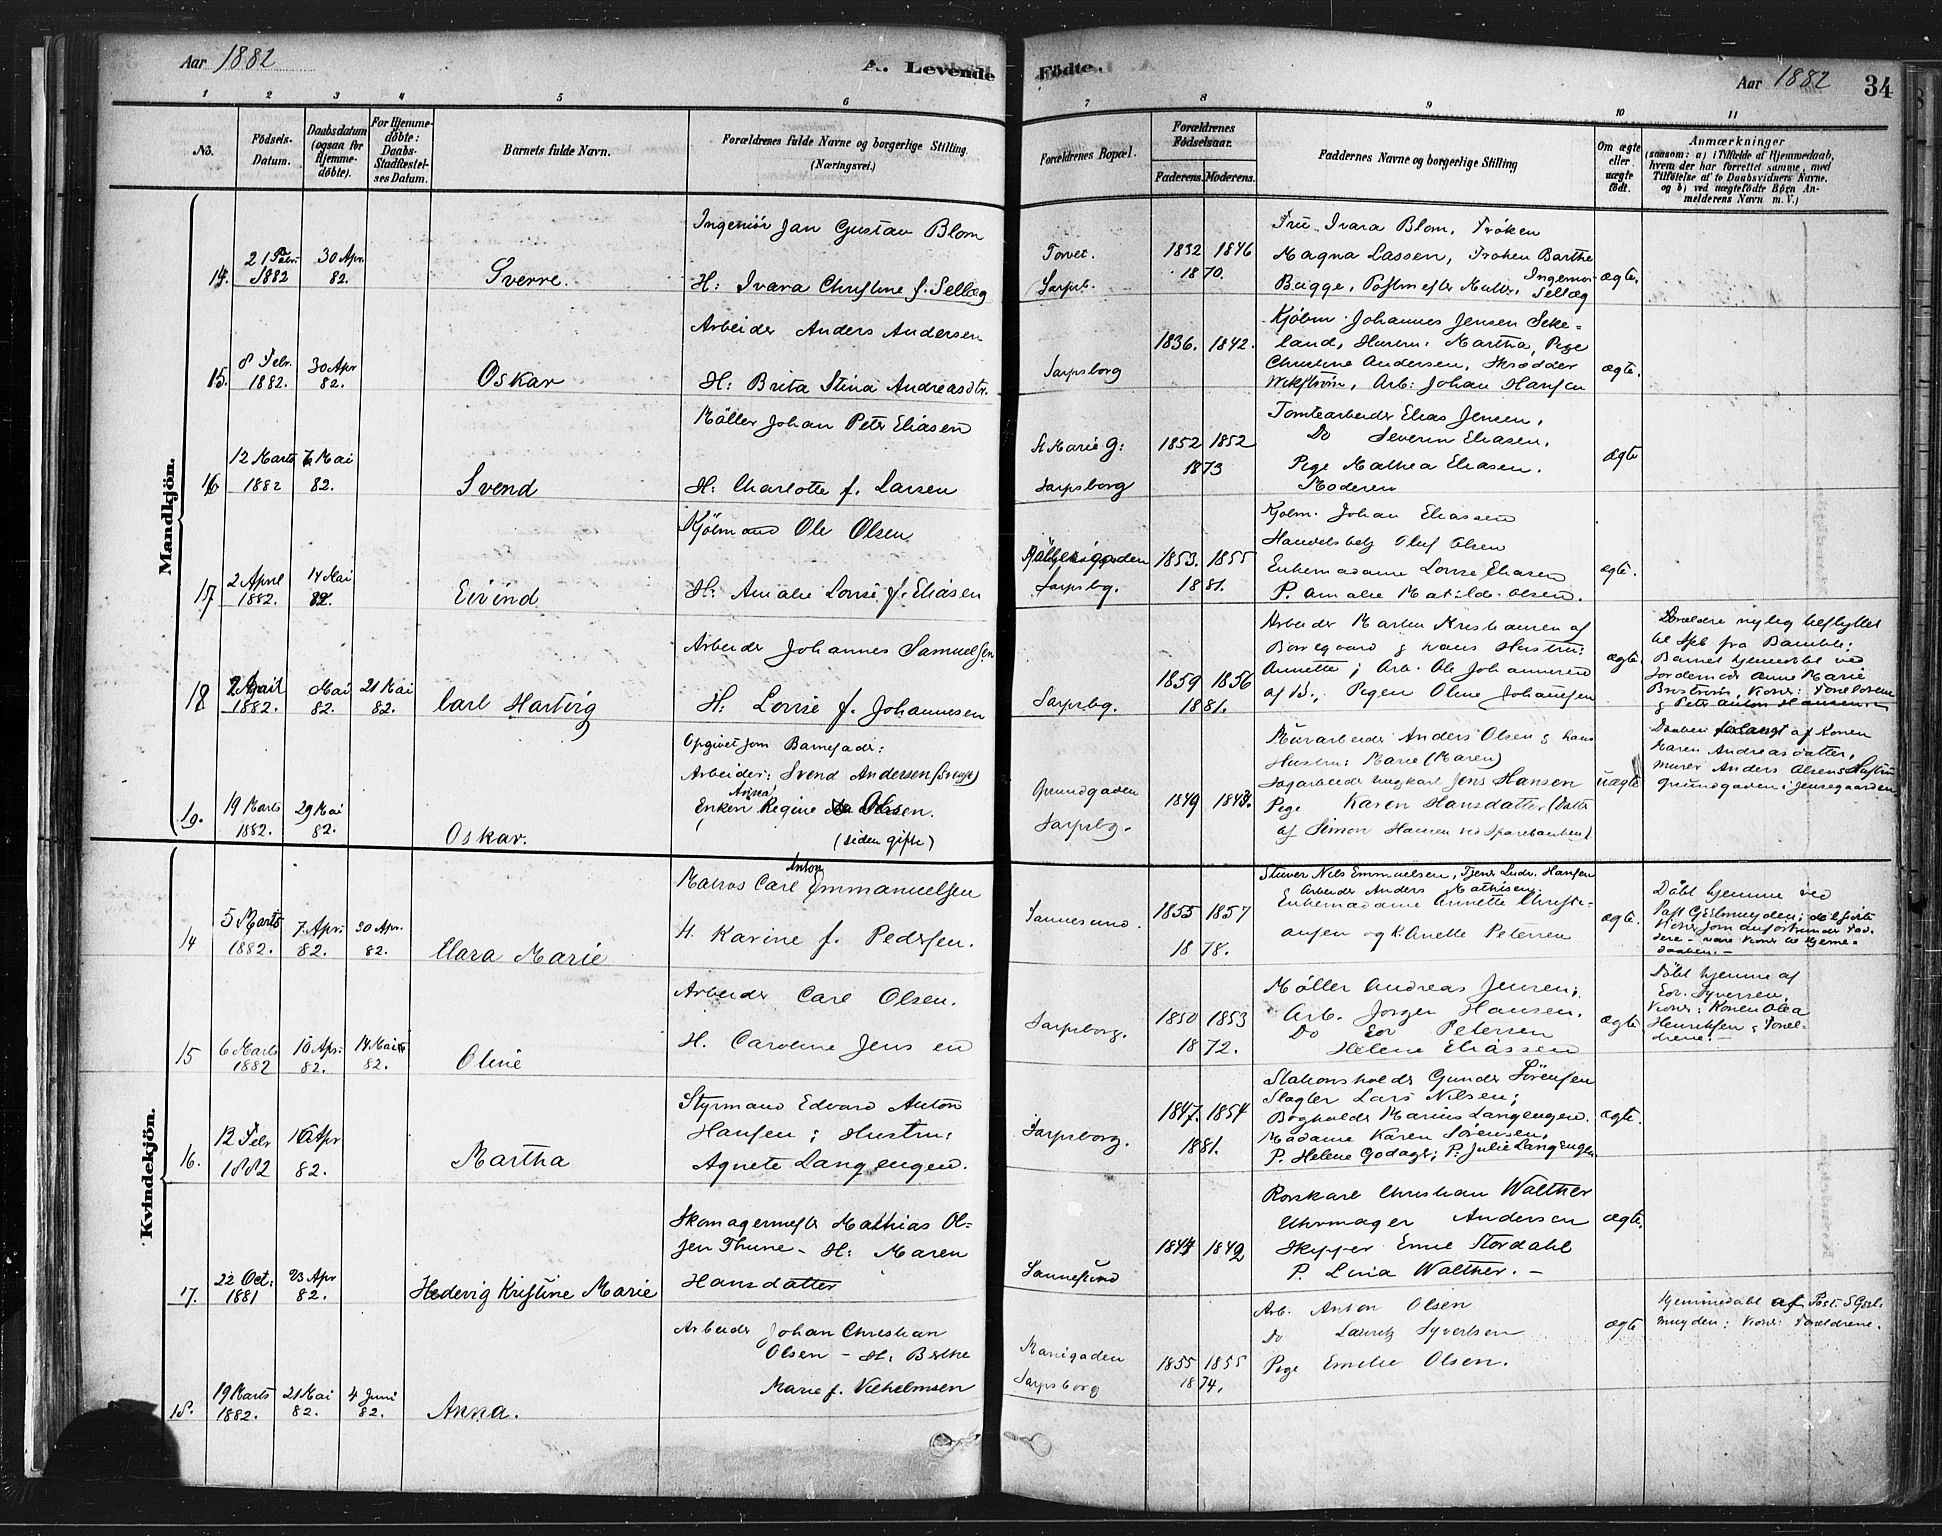 Aar 1882
A. Levende
Fødte.
Aar 1882
34
1 2 3 4 5 6 7 8 9 10 11
No.
Fødsels-
Datum.
Daabsdatum
(ogsaa for
Hjemme-
døbte).
For Hjemme-
døbte:
Daabs-
Stadfæstel-
ses Datum.
Barnets fulde Navn.
Forældrenes fulde Navne og borgerlige Stilling
(Næringsvei.)
Forældrenes Bopæl.
Forældrenes
Fødselsaar.
Faderens. Moderens.
Faddernes Navne og borgerlige Stilling
Om ægte
eller
uægte
født.
Anmærkninger
(saasom: a) i Tilfælde af Hjemmedaab,
hvem der har forrettet samme, med
Tilføielse af to Daabsvidners Navne.
og b) ved uægtefødte Børn An-
melderens Navn m. V.)
Mandkjön.
14.
21 Febr.
1882
30 Apr.
82.
Sverre.
Ingeniör Jan Gustav Blom
H: Ivara Christine f. Sellæg
Torvet.
Sarpsb.
1832 1846
1870.
Fru Ivara Blom, Frøken
Magna Lassen, Frøken Barthe
Bugge, Postmester Ingeniør
Sellæg
ægte.
15.
8 Febr.
1882.
30 Apr
82.
Oskar
Arbeider Anders Andersen
H: Brita Stina Andreasdtr.
Sarpsborg
1836. 1842.
Kjöbm. Johannes Jensen
land, Hustru: Martha, Pige
Christine Andersen, Skrødder
Wikström, Arb: Johan Hansen
ægte.
16
12 Marts
1882
7 Mai
82.
Svend
Möller Johan Peter Eliasen
H: Charlotte f. Larsen
St Marie G:
Sarpsborg
1852 1852
1873
Tomtearbeider Elias Jensen,
Do Severin Eliasen.
Pige Mathea Eliasen.
Moderen
ægte
17
2 April
1882.
14 Mai
82.
Eivind
Kjöbmand Ole Olsen
H: Amalie Lovise f. Eliasen
Sarpsbg.
1853. 1855
1881.
Kjøbm. Johan Eliassen
Oluf Olsen
Enkemadame Lovise Eliasen
P. Amalie Matilde Olsen.
ægte.
18
2 April
1882.
Mai
82.
21 Mai
82.
Carl Hartvig
Arbeider Johannes Samuelsen
H: Lovise f. Johannesen
Sarpsbg.
1859 1856
1881.
Arbeider Martin Kristiansen af
Borregaard & hans Hustru:
Annette; Arb. Ole Johannesen
af B.; Pigen Oline Johansen
ægte
Forældre nylig tilflyttet
til Spb fra Bamble;
Barnet hjemdøbt ved
Jordemor Anne Marie
Vidner: Forældrene
& Peter Anton Hansen
19.
19 Marts
1882.
29 Mai
82.
Oskar.
Opgivet som Barnefader:
Arbeider: Svend Andersen (Svensk)
Anna
Enken Regine Olsen.
(siden gift)
Grundgaden
Sarpsbg.
1849 1843.
Murarbeider Anders Olsen & hans
Hustru: Marie (Maren)
Sagarbeider ungkarl Jens Hansen
Pige Karen Hansdatter (Datter
af Simon Hansen ved Sparebanken)
uægte
Daaben forlangt af Konen
Maren Andreasdatter,
murer Anders Olsens Hustru
Grundgaden; Jensegaarden.
Kvindekjön.
14
5 Marts
1882.
7 Apr.
82.
30 Apr.
82.
Clara Marie
Anton
Matros Carl Emmanuelsen
H. Karine f. Pedersen.
Sannesund.
1855 1857
1878.
Stuver Nils Emmuelsen, Tjener Ludv. Hansen
& Arbeider Anders Mathisen;
Enkemadame Annette Christi-
ansen og K. Anette Petersen
ægte.
Döbt hjemme ved
daaben.
15
6 Marts
1882
10 Apr.
82.
14 Mai
82.
Oline
Arbeider Carl Olsen.
H. Caroline Jensen
Sarpsborg.
1850 1853
1872.
Møller Andreas Jensen;
Arb. Jørgen Hansen.
Do Edv Petersen
Helene Eliassen
ægte
Döbt hjemme af
Edv. Syversen,
Vidner: Konen Olea
Henriksen & Foræl-
drene.
16.
12 Febr
1882
10 Apr
82.
Martha
Styrmand Edvard Anton
Hansen; Hustru:
Agnete Langengen.
Sarpsborg.
1847. 1854
1881.
Stationsholder Gunder Sörensen
Slagter Lars Nilsen;
Bogholder Marius Langengen.
Madame Karen Sörensen,
P. Helene Godager; P. Julie Langengen
ægte.
17.
22 Oct:
1881
23 Apr
82.
Hedevig Kristine Marie
Skomagermester Mathias Ol-
sen Thune - H: Maren
Hansdatter
Sannesund
1844 1842
Rorskarl Christian Walther
Uhrmager Andersen
Skipper Stordahl
P. Lina Walther. -
ægte.
18.
19 Marts
1882.
21 Mai
82.
4 Juni
82.
Anna.
Arbeider Johan Christian
Olsen - H: Berthe
Marie f. Vilhelmsen
Marigaden
Sarpsborg
1855 1855
1874.
Arb. Anton Olsen
Do Lauritz Syvertsen
Pige Emilie Olsen.
ægte
Hjemmedøbt af Past. S Gjel-
muyden; Vidner: Forældrene.